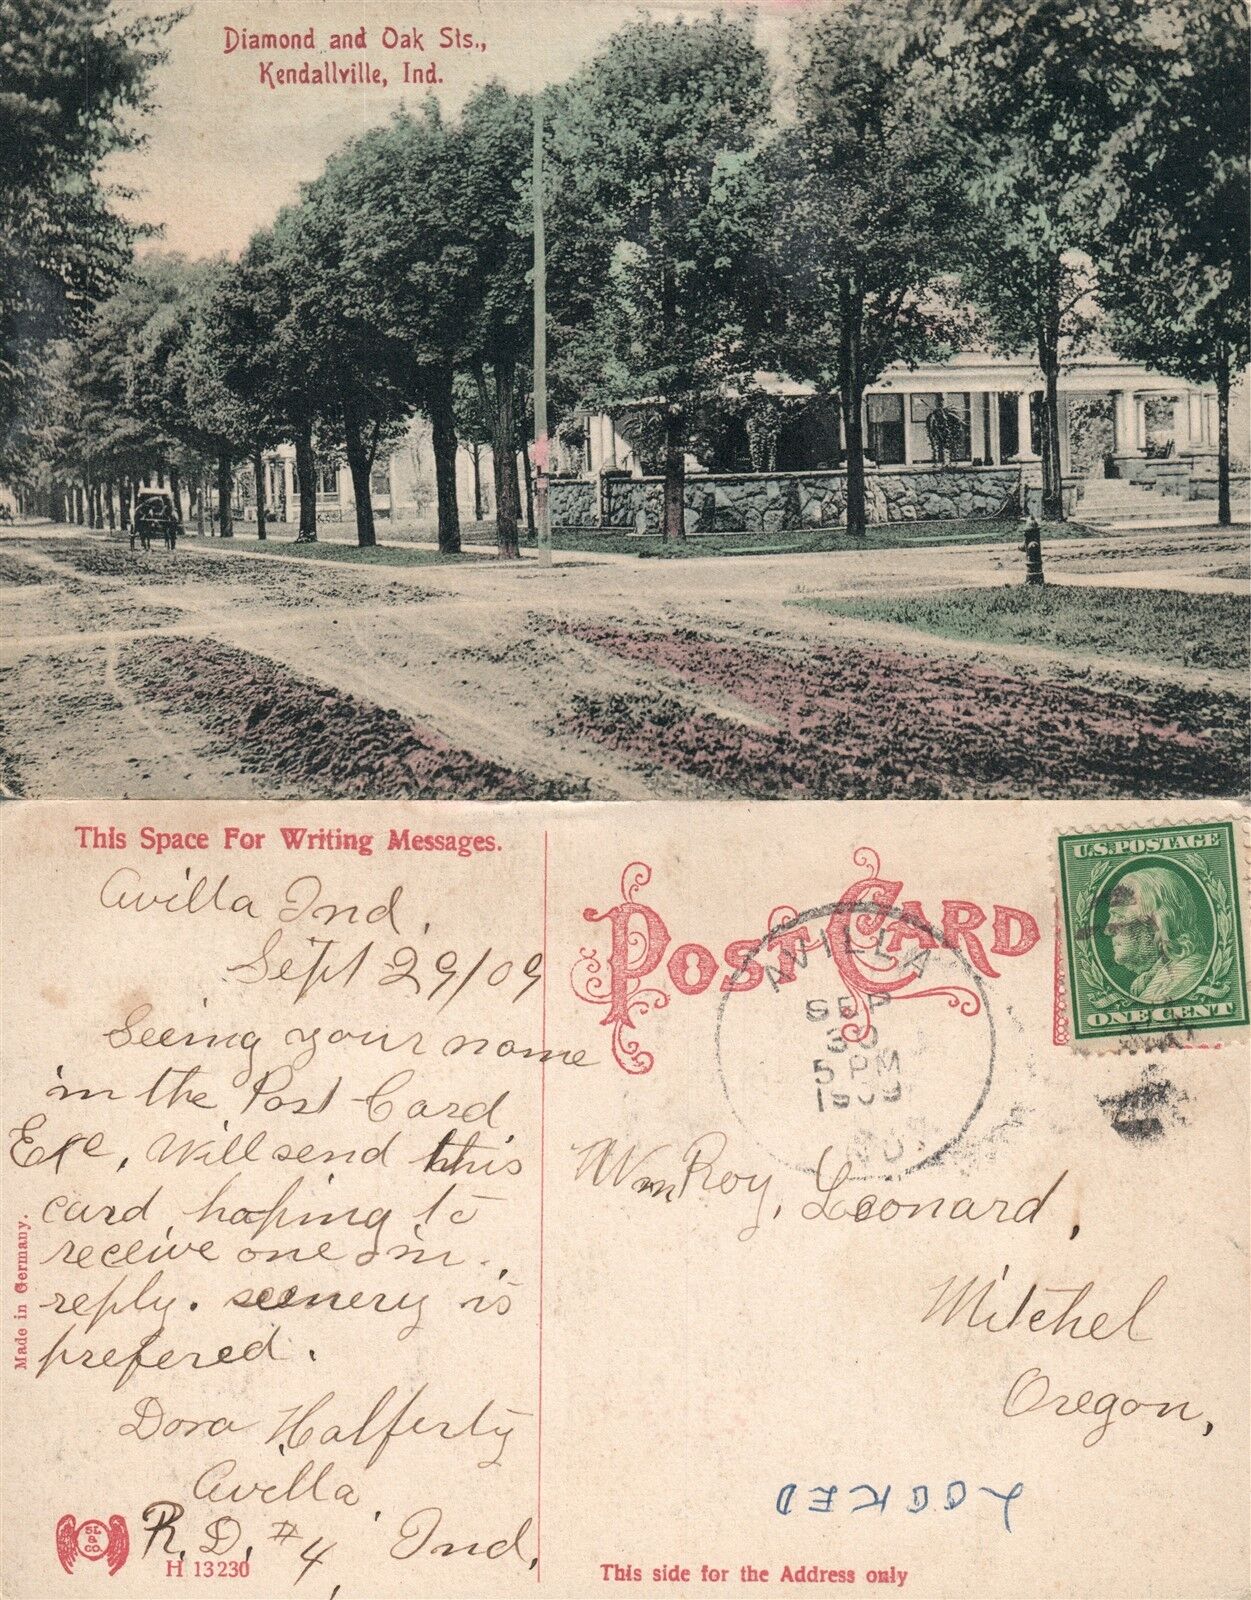 Diamond and Oak Sts.,
Kendallville, Ind.
This Space For Writing Messages.
Avilla Ind.
Sept 29/09
Seeing your name
in the Post Card
Exc, Will send this
card, hoping to
receive one in
reply. scenery is
prefered.
Dora Halferty
Avilla
R. D. #4, Ind.
Made in Germany.
SL & CO.
H 13230
POST CARD
AVILLA
SEP
30
5 PM
1909
U.S. POSTAGE
ONE CENT
Wm Roy, Leonard,
Mitchel
Oregon,
LOOKED
This side for the Address only